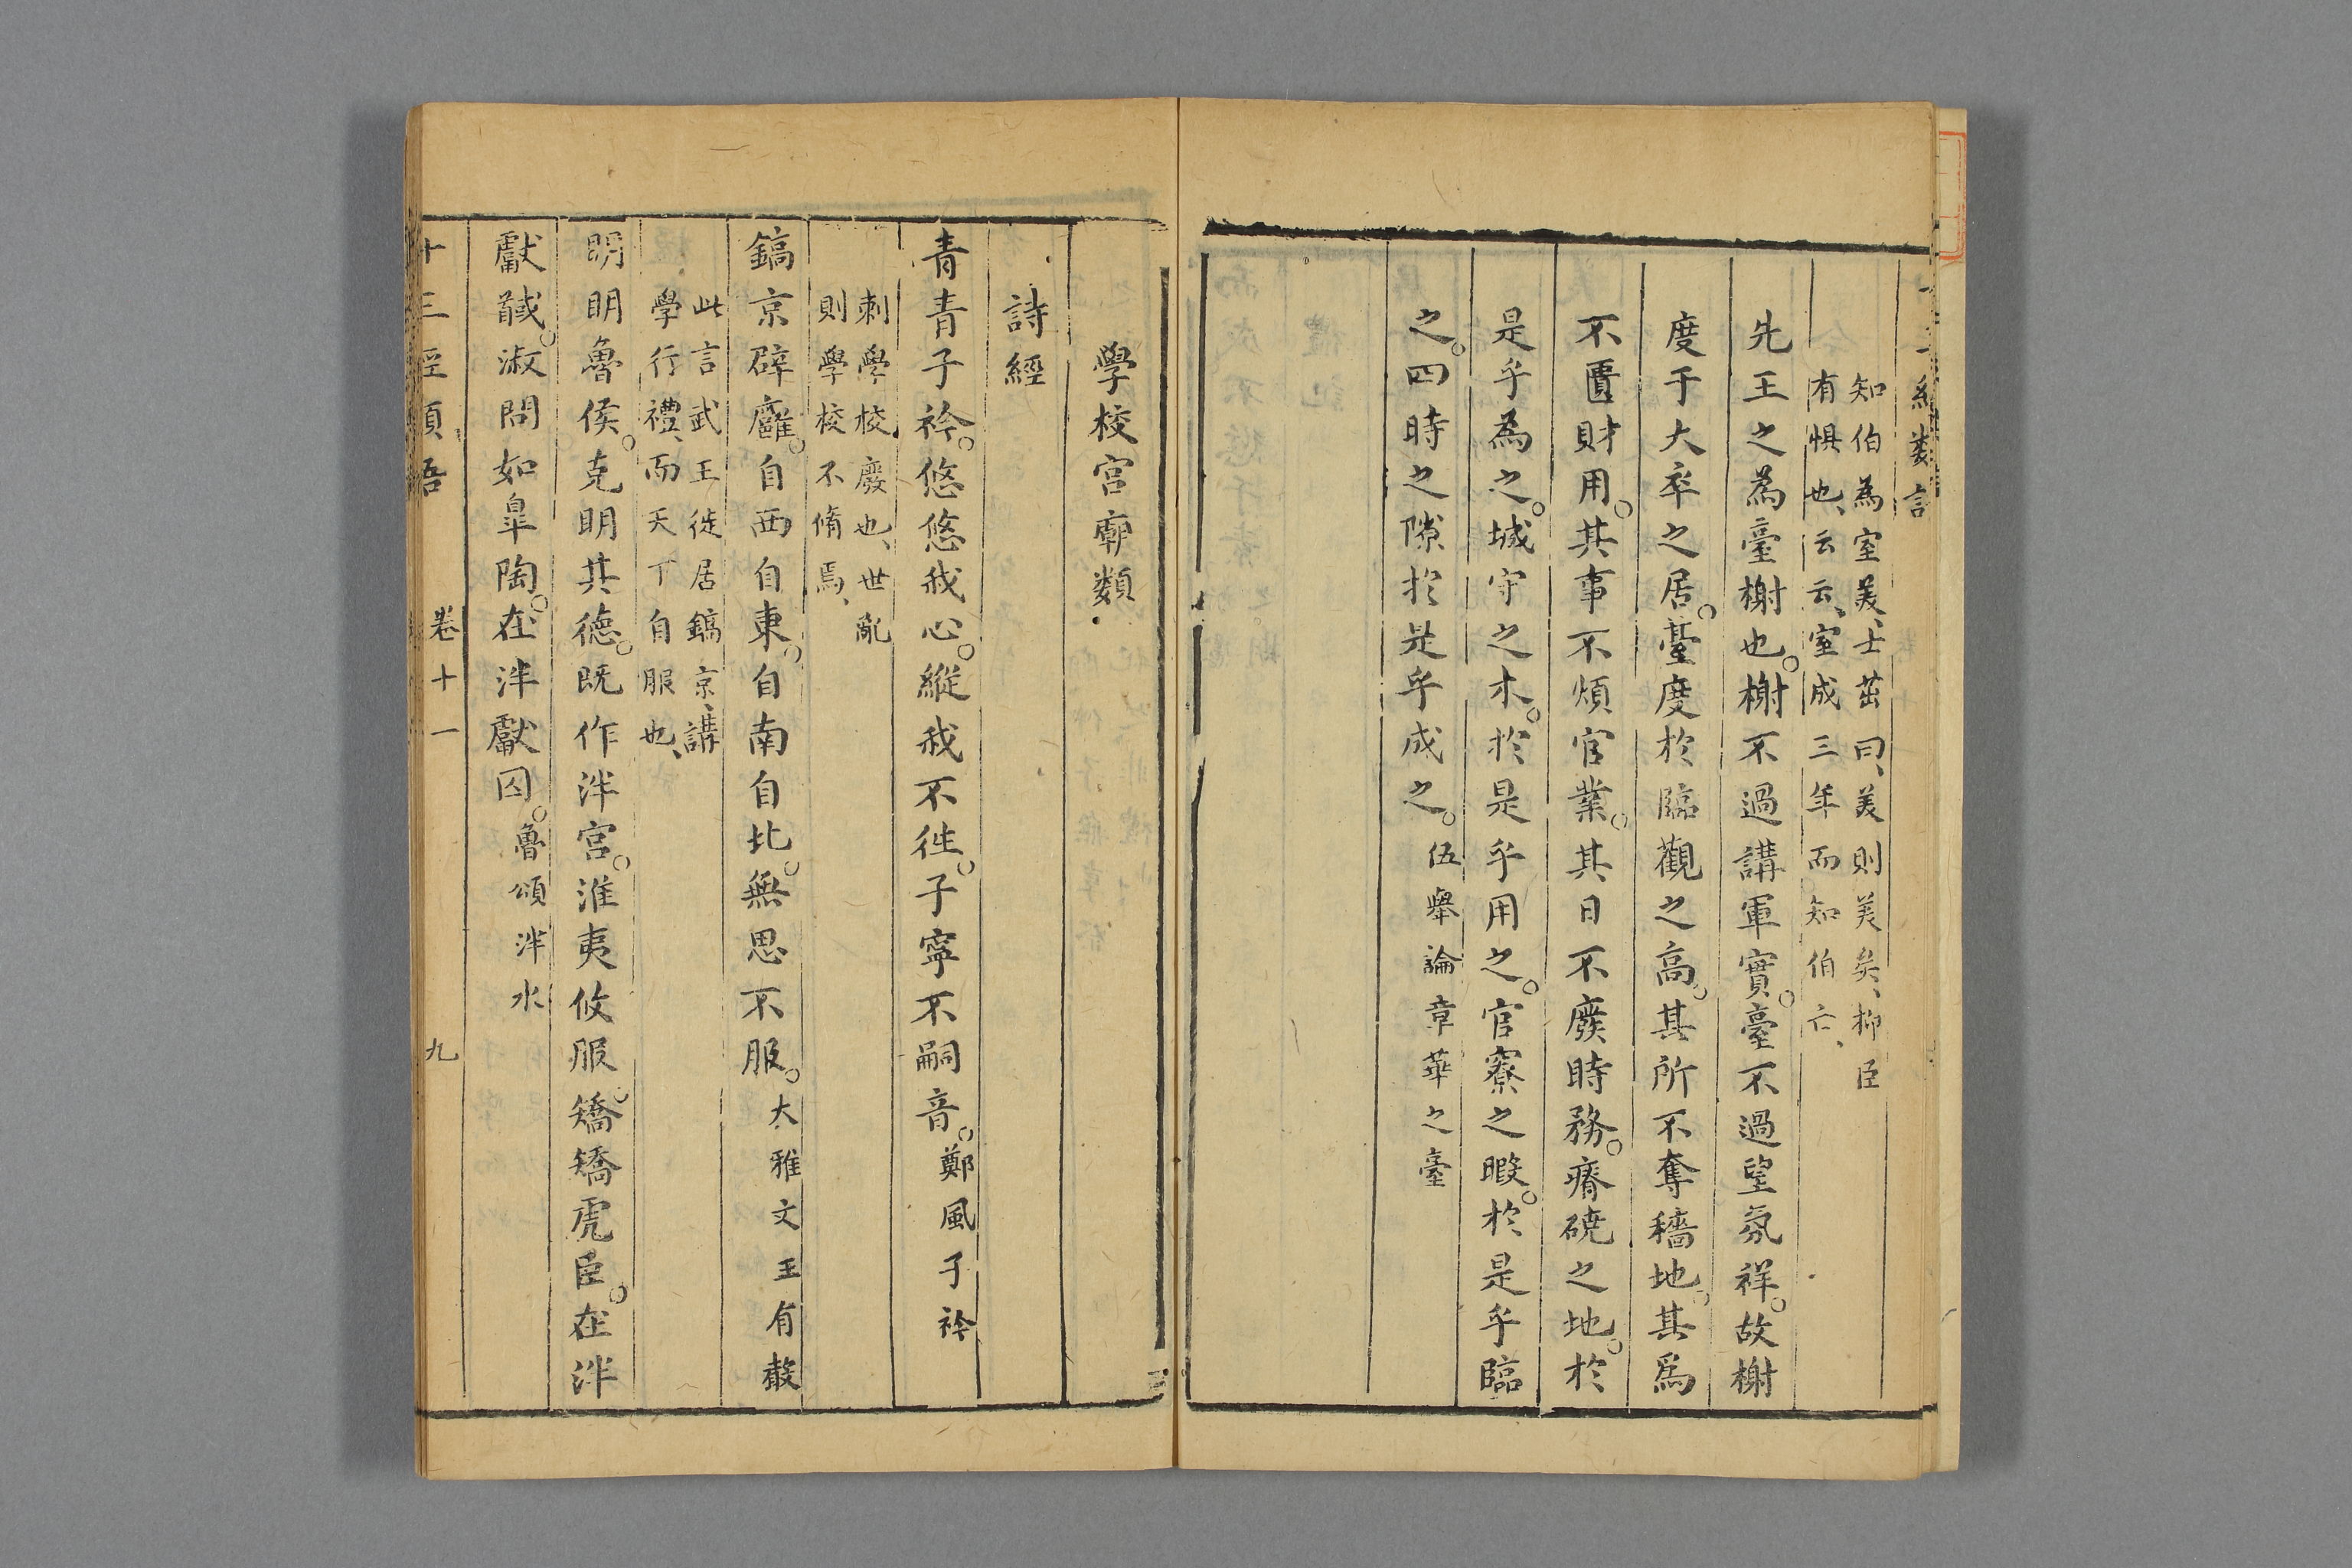 知伯為室美、士茁曰、美則美矣、抑臣
有惧也、云云、室成三年而知伯亡、
先王之為臺榭也。榭不過講軍實。臺不過望氛祥。故榭
度于大卒之居。臺度於臨觀之高。其所不奪穡地。其爲
不匱財用。其事不煩官業。其日不廢時務。瘠磽之地。於
是乎為之。城守之木。於是乎用之。官寮之暇。於是乎臨
之。四時之隙於是乎成之。伍舉論章華之臺
學校宮廟類
詩經
青青子衿。悠悠我心。縱我不徃。子寧不嗣音。鄭風子衿
刺學校廢也、世亂
則學校不脩焉、
鎬京辟廱。自西自東。自南自北。無思不服。大雅文王有聲
此言武王徙居鎬京、講
學行禮、而天下自服也、
明明魯侯。克明其德。既作泮宮。淮夷攸服。矯矯虎臣。在泮
獻馘。淑問如臯陶。在泮獻囚。魯頌泮水
十三經類語 卷十一 九